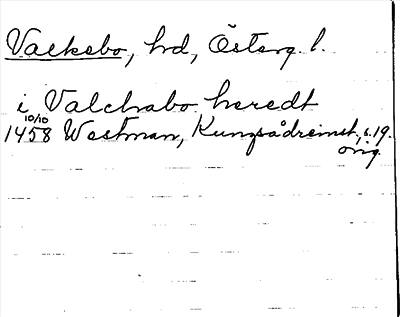 Valkebo, hd, Österg. l.
i Valchabo heredt
10/10
1458 Westman, Kungsådreinst., s. 19.
orig.